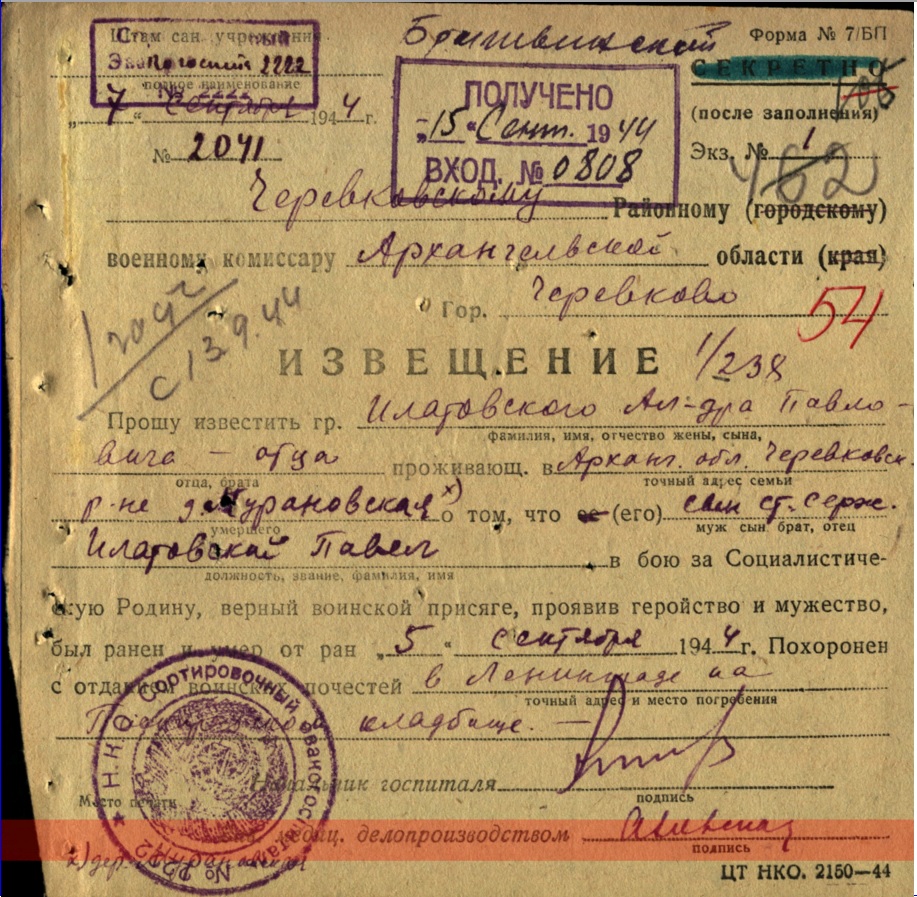 Штам сан. учреждения
Эвакогоспит 2222
полное наименование
Форма № 7/БП
СЕКРЕТНО
(после заполнения)
Экз. № 1
„7“ Сентября 1944 г.
№ 2041
ПОЛУЧЕНО
„15“ Сент. 1944
ВХОД. № 0808
462
Черевковскому Районному (городскому)
военному комиссару Архангельской области (края)
Гор. Черевково
54
ИЗВЕЩЕНИЕ 1/238
Прошу известить гр. Илатовского Ал-дра Павло-
фамилия, имя, отчество жены, сына,
вича – отца проживающ. в Арханг. обл. Черевковск.
отца, брата точный адрес семьи
р-не д. Мурановская х) о том, что ее (его) сын ст. серж.
умершего муж сын. брат, отец
Илатовский Павел в бою за Социалистиче-
должность, звание, фамилия, имя
скую Родину, верный воинской присяге, проявив геройство и мужество,
был ранен и умер от ран „5“ сентября 1944 г. Похоронен
с отданием воинских почестей в Ленинграде на
точный адрес и место погребения
кладбище. –
Начальник госпиталя
подпись
Место печати
медиц. делопроизводством
подпись
Н.К.О. Сортировочный Эвакогоспиталь № 2222
х) дер.
ЦТ НКО. 2150—44